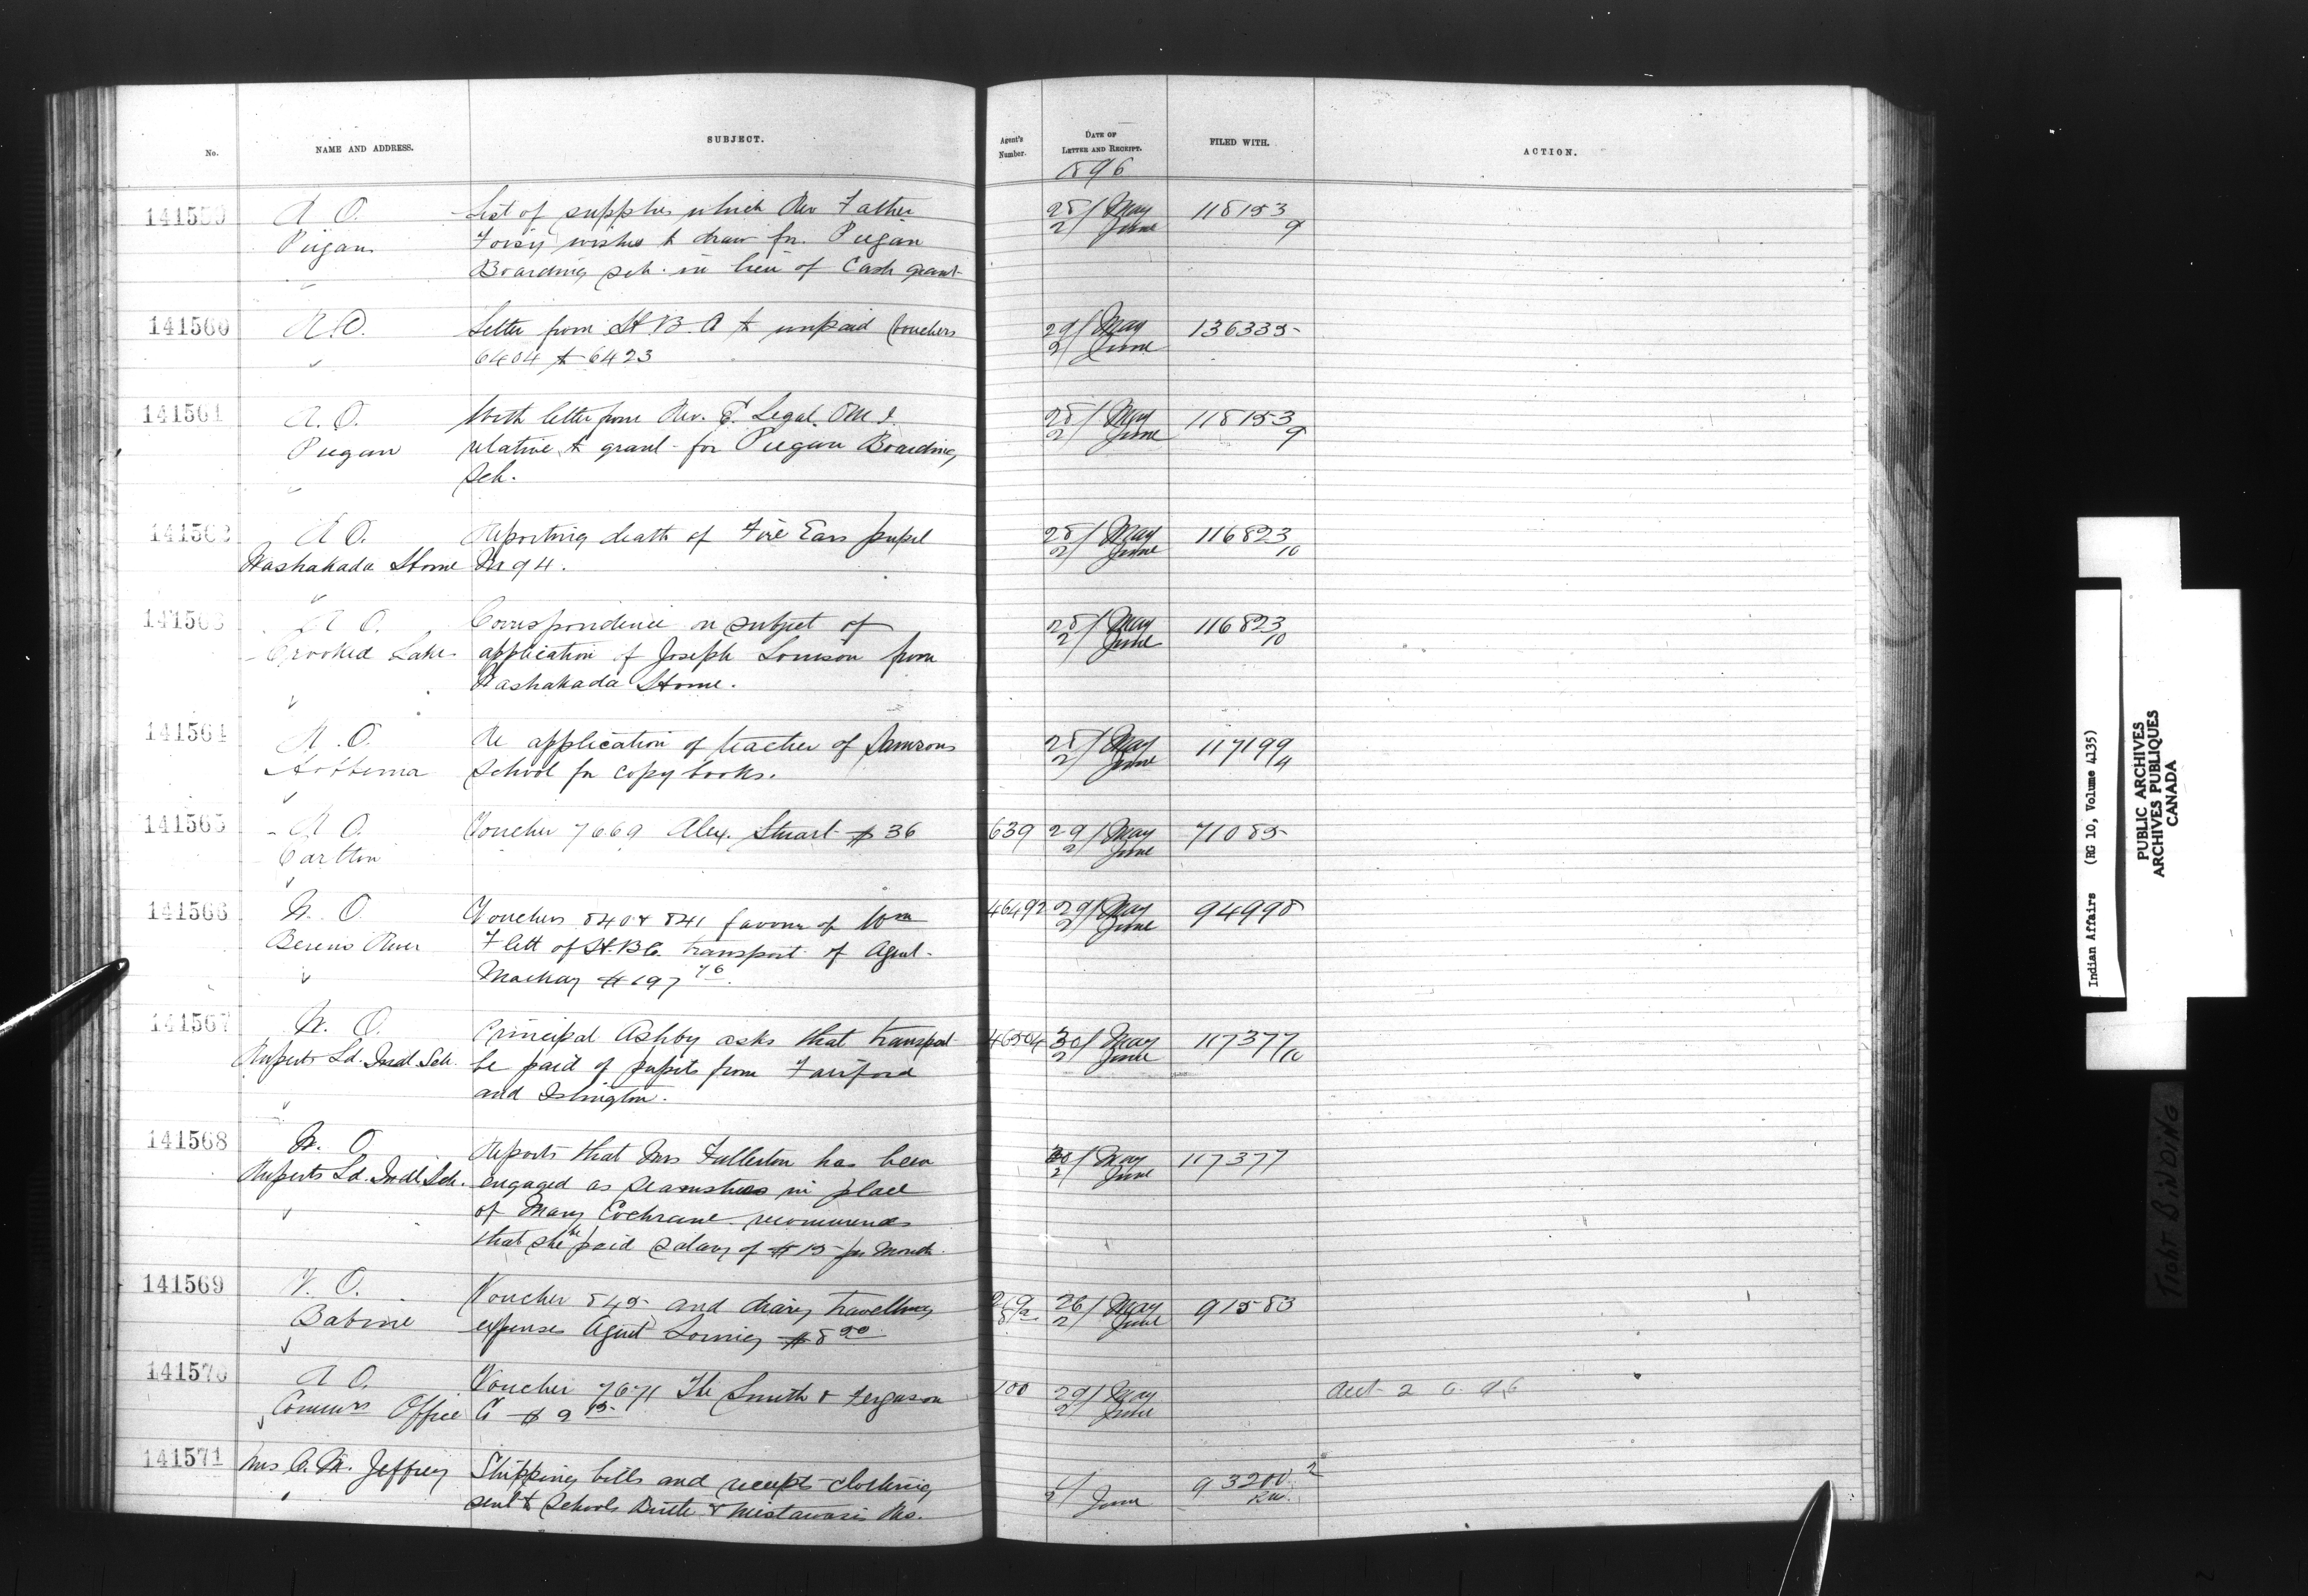 No.
NAME AND ADDRESS.
SUBJECT.
Agent's Number.
DATE OF LETTER AND RECEIPT.
FILED WITH.
ACTION.
1896
141559 A O. List of supplies which Rev Father 28/ May 118153
Piegan Foisy wishes to draw for Piegan 2/ June 9
Boarding sch. in lieu of Cash grant
141560 A.O. Letter from H B. Co unpaid vouchers 29/ May 136335
6404 to 6423 2/ June
141561 A. O. With letter from Rev. E. Legal. OM.I. 28/ May 118153
Piegan relative to grant for Piegan Boarding 2/ June 9
Sch.
141562 A O. Reporting death of Fire Ears pupil 28/ May 116823
Washakada Home No 94. 2/ June 10
141563 A O. Correspondence on subject of 28/ May 116823
Crooked Lake application of Joseph from 2/ June 10
Washakada Home.
141564 A. O. Re application of teacher of Samsons 28/ May 117199
Hobbema School for copy books. 2/ June 4
141565 A O. Voucher 7669 Alex. Stuart $36 639 29/ May 71085
Carlton 2/ June
141566 W. O. Vouchers 840 & 841 favour of Wm 46492 29/ May 94998
Berens River Flett of H.B.Co. transport of Agent 2/ June
Mackay $197 76
141567 W. O. Principal Ashby asks that transport 46504 30/ May 117377
Ruperts Ld. Indl Sch. be paid of pupils from Fairford 2/ June 10
and Islington.
141568 W. O. Reports that Mrs Fullerton has been 30/ May 117377
Ruperts Ld. Indl Sch. engaged as seamstress in place 2/ June
of Mary Cochrane recommends
that she be paid salary of $15 per month.
141569 V. O. Voucher 845 and diary travelling 26/ May 91583
Babine expenses Agent Loring $8 2/ June
141570 A O. Voucher 7671 The Smith & Ferguson 100 29/ May
Commrs Office Co $9 15 2/ June
141571 Mrs A. M. Jeffrey Shipping bills and receipts clothing 93200 2
sent to Schools Birtle & Mistawasis Res. 2/ June
Indian Affairs (RG 10, Volume 4135)
PUBLIC ARCHIVES
ARCHIVES PUBLIQUES
CANADA
TIGHT BINDING